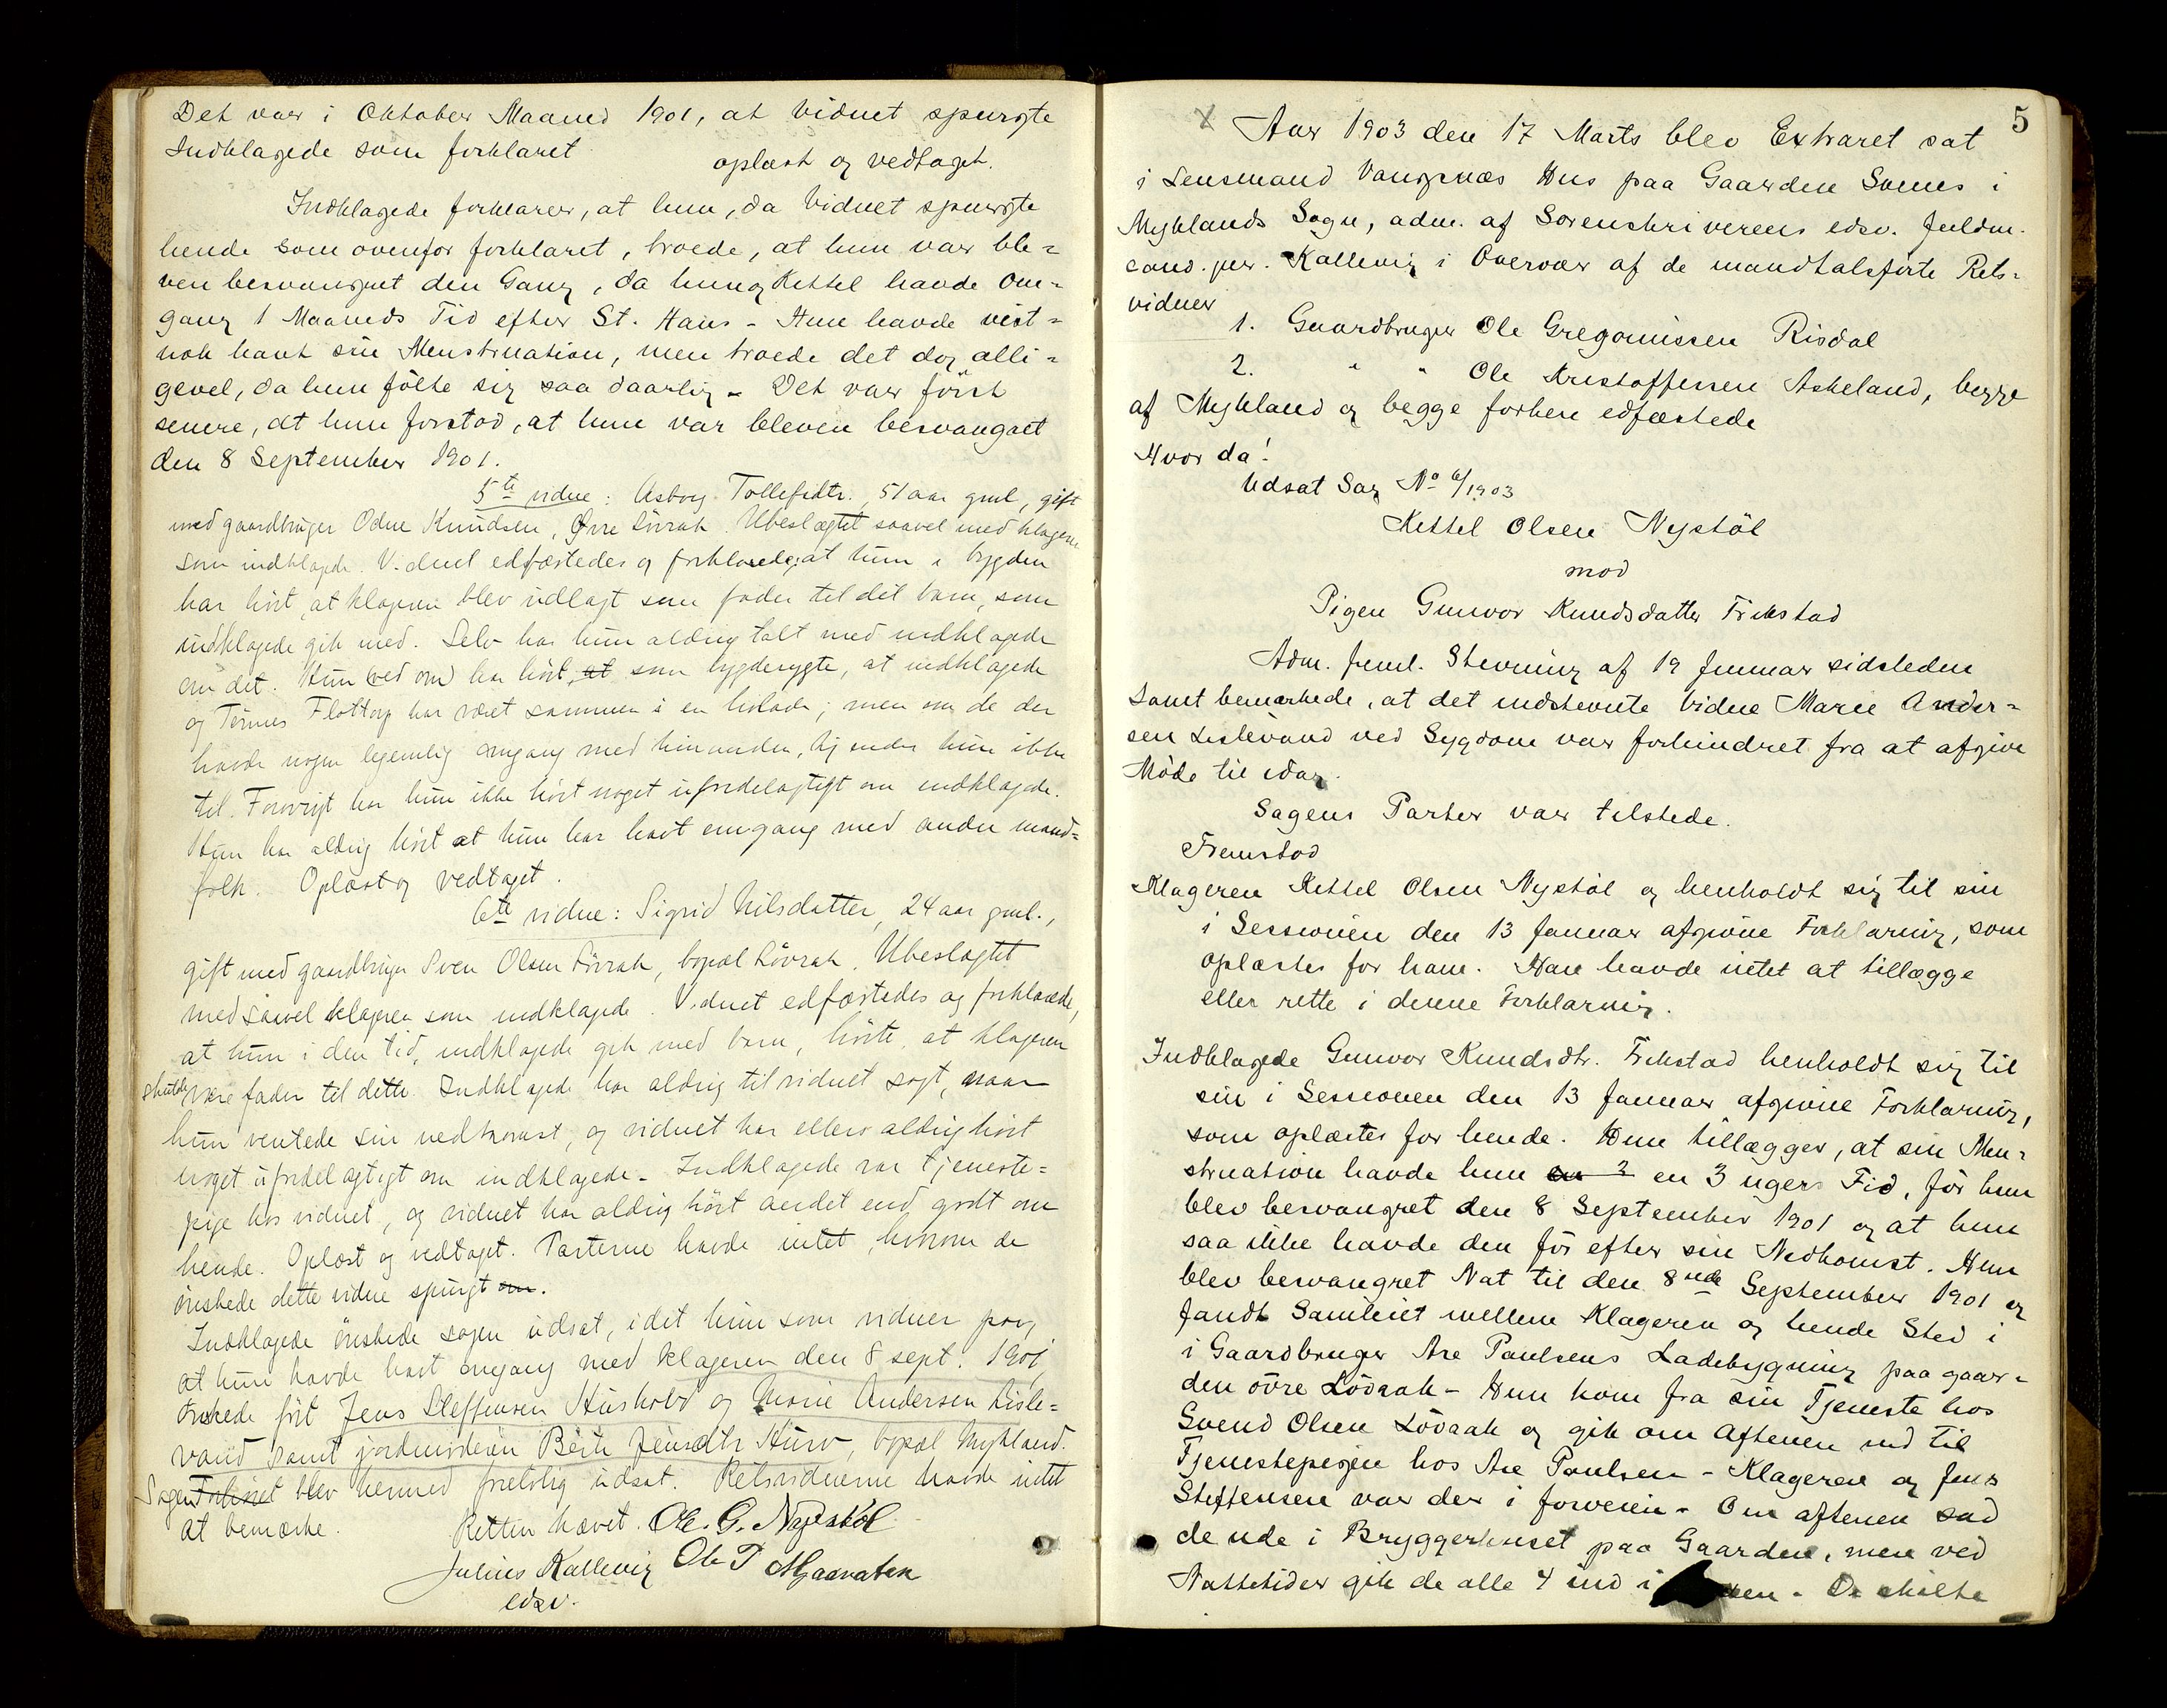 Det var i Oktober Maaned 1901, at Vidnet spurgte
Indklagede som forklaret
oplæst og vedtaget.
Indklagede forklarer, at hun, da Vidnet spurgte
hende som ovenfor forklaret, troede, at hun var ble-
ven besvangret den Gang, da hun og Kittel havde Om-
gang 1 Maaneds Tid efter St. Hans - Hun havde vist-
nok havt sin Menstruation, men troede det dog alli-
gevel, da hun følte sig saa daarlig - Det var først
senere, at hun forstod, at hun var bleven besvangret
den 8 September 1901.
5te vidne: Asborg Tollefsdtr., 51 aar gml, gift
med gaardbruger Odne Knudsen, Øvre Lövrak. Ubeslægtet saavel med klageren
som indklagede. Vidnet edfæstedes og forklarede, at hun i bygden
har hört, at klageren blev udlagt som fader til det barn, som
indklagede gik med. Selv har hun aldrig talt med indklagede
om det. Hun (ved om) har hört, at som bygderygte, at indklagede
og Tönnes Flottorp har været sammen i en hölade; men om de der
havde nogen legemlig omgang med hinanden, kjender hun ikke
til. Forövrigt har hun ikke hört noget ufordelagtigt om indklagede.
Hun har aldrig hört at hun har havt omgang med andre mand-
folk. Oplæst og vedtaget.
6te vidne: Sigrid Nilsdatter, 24 aar gml.,
gift med gaardbruger Sven Olsen Lövrak, bopæl Lövrak. Ubeslægtet
med saavel klageren som indklagede. Vidnet edfæstedes og forklarede,
at hun i den tid, indklagede gik med barn, hörte, at klageren
skulde være fader til dette. Indklagede har aldrig til vidnet sagt, naar
hun ventede sin nedkomst, og vidnet har ellers aldrig hört
noget ufordelagtigt om indklagede. Indklagede var tjeneste-
pige hos vidnet, og vidnet har aldrig hört andet end godt om
hende. Oplæst og vedtaget. Parterne havde intet, hvorom de
önskede dette vidne spurgt om.
Indklagede önskede sagen udsat, idet hun som vidner paa,
at hun havde havt omgang med klageren den 8 sept. 1901,
önskede fört Jens Steffensen Huskold og Marie Andersen Lisle-
vand samt jordmoderen Berte Jensdtr Husv, bopæl Mykland.
Sagen Forliket blev hermed forelöbig udsat. Retsvidnerne havde intet
at bemærke.
Retten hævet. Ole. G. Nystöl
Julius Kallevig Ole T
edsv.
5
X Aar 1903 den 17 Marts blev Extraret sat
i Lensmand Vangsnæs Hus paa Gaarden Svenes i
Myklands Sogn, adm. af Sorenskriverens edsv. Fuldm.
cand. jur. Kallevig i Overvær af de mandtalsførte Rets-
vidner
1. Gaardbruger Ole Gregoriussen Risdal
2. " " Ole Kristoffersen Askeland, begge
af Mykland og begge forhen edfæstede
Hvor da!
Udsat Sag No 6/1903
Kittel Olsen Nystøl
mod
Pigen Gunvor Knudsdatter Frikstad
Adm. freml. Stevning af 19 Januar sidstleden
samt bemærkede, at det indstevnte Vidne Marie Ander-
sen Lislevand ved Sygdom var forhindret fra at afgive
Møde til idag.
Sagens Parter var tilstede.
Fremstod
Klageren Kittel Olsen Nystøl og henholdt sig til sin
i Sessionen den 13 Januar afgivne Forklaring, som
oplæstes for ham. Han havde intet at tillægge
eller rette i denne Forklaring.
Indklagede Gunvor Knudsdtr. Frikstad henholdt sig til
sin i Sessionen den 13 Januar afgivne Forklaring,
som oplæstes for hende. Hun tillægger, at sin Men-
struation havde hun en 2 en 3 ugers Tid, før hun
blev besvangret den 8 September 1901 og at hun
saa ikke havde den før efter sin Nedkomst. Hun
blev besvangret Nat til den 8nde September 1901 og
fandt Samleiet mellem Klageren og hende Sted i
i Gaardbruger Are Paulsens Ladebygning paa gaar-
den øvre Løvrak - Hun kom fra sin Tjeneste hos
Svend Olsen Løvrak og gik om Aftenen ind til
Tjenestepigen hos Are Paulsen - Klageren og Jens
Steffensen var der i forveien - Om aftenen sad
de ude i Bryggerhuset paa Gaarden, men ved
Nattetider gik de alle 4 ind i - De skulte